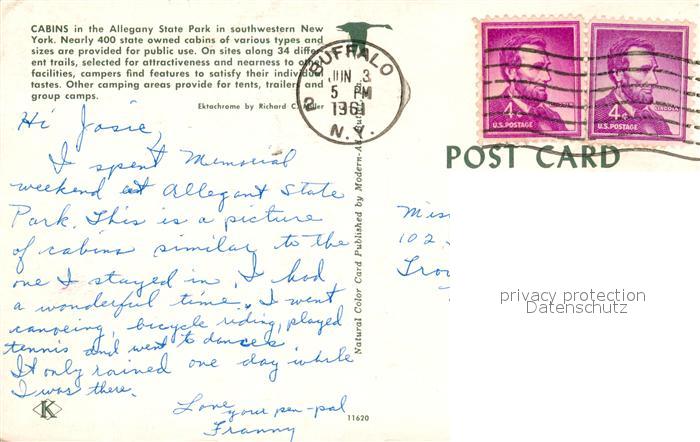 CABINS in the Allegany State Park in southwestern New
York. Nearly 400 state owned cabins of various types and
sizes are provided for public use. On sites along 34 differ-
ent trails, selected for attractiveness and nearness to other
facilities, campers find features to satisfy their individual
tastes. Other camping areas provide for tents, trailers and
group camps.
Ektachrome by Richard C. Miller
Hi Josie,
I spent Memorial
weekend at Allegant State
Park. This is a picture
of cabins similar to the
one I stayed in. I had
a wonderful time. I went
canoeing, bicycle riding, played
tennis and went to dances.
It only rained one day while
I was there.
Love
your pen-pal
Franny
K
11620
Natural Color Card Published by Modern-Ad
BUFFALO
JUN 3
5 PM
1961
N.Y.
4¢ LINCOLN
U.S. POSTAGE
4¢ LINCOLN
U.S. POSTAGE
POST CARD
Miss
102
Troy
privacy protection
Datenschutz